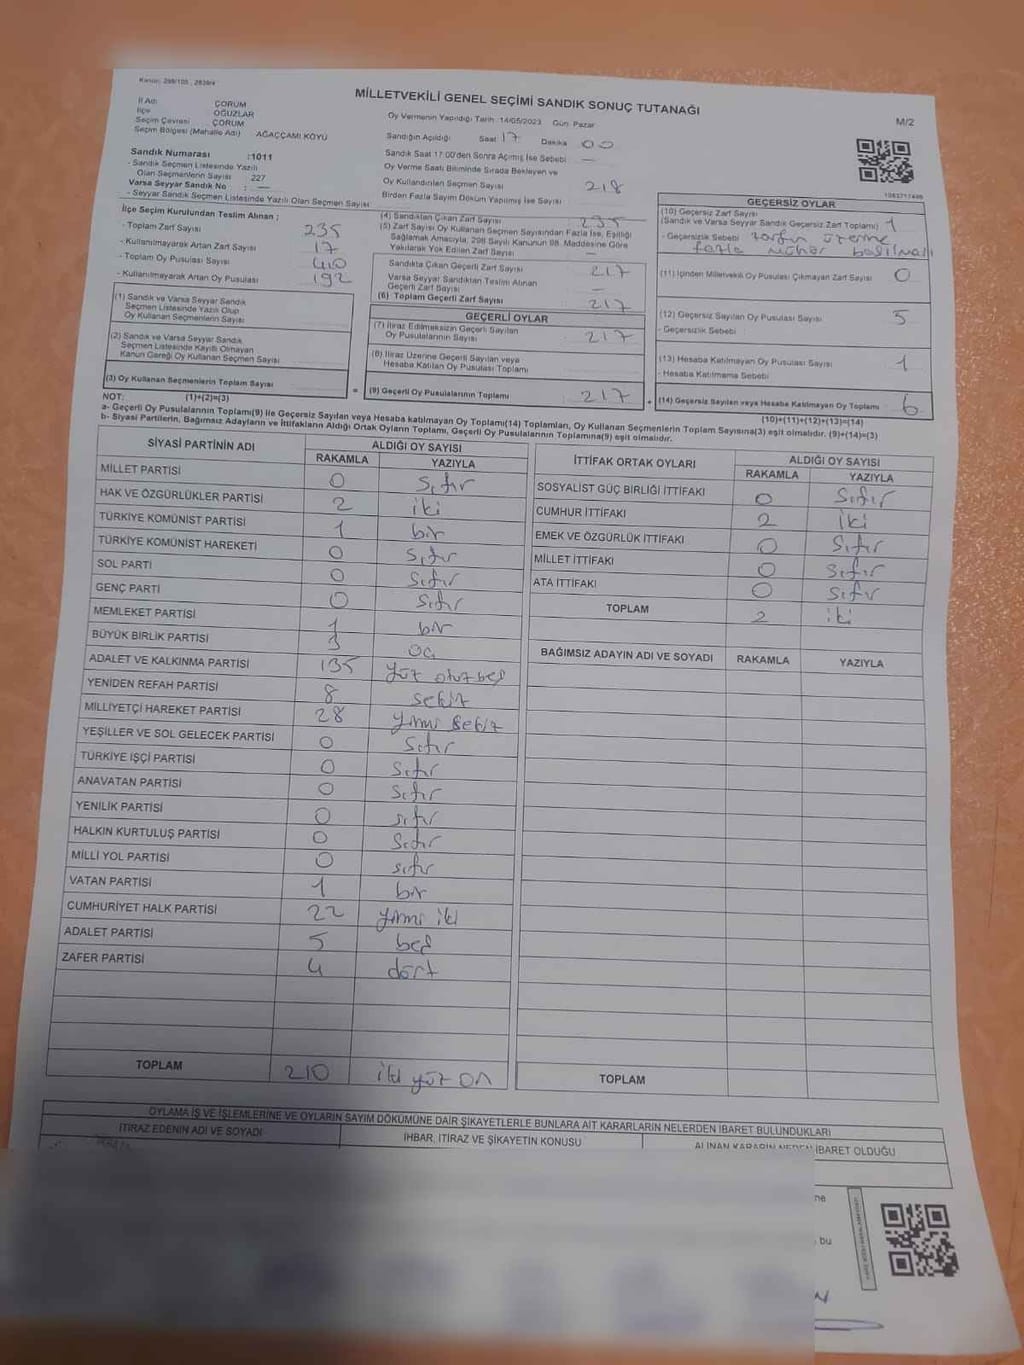 Kanun: 298/105 , 2839/4
MİLLETVEKİLİ GENEL SEÇİMİ SANDIK SONUÇ TUTANAĞI
M/2
İl Adı ÇORUM
İlçe OĞUZLAR
Seçim Çevresi ÇORUM
Seçim Bölgesi (Mahalle Adı) AĞAÇÇAMI KÖYÜ
Sandık Numarası :1011
- Sandık Seçmen Listesinde Yazılı
Olan Seçmenlerin Sayısı 227
Varsa Seyyar Sandık No : —
- Seyyar Sandık Seçmen Listesinde Yazılı Olan Seçmen Sayısı
Oy Vermenin Yapıldığı Tarih :14/05/2023 Gün: Pazar
Sandığın Açıldığı Saat 17 Dakika 00
Sandık Saat 17:00'den Sonra Açılmış İse Sebebi —
Oy Verme Saati Bitiminde Sırada Bekleyen ve
Oy Kullandırılan Seçmen Sayısı 218
Birden Fazla Sayım Döküm Yapılmış İse Sayısı
İlçe Seçim Kurulundan Teslim Alınan ;
- Toplam Zarf Sayısı 235
- Kullanılmayarak Artan Zarf Sayısı 17
- Toplam Oy Pusulası Sayısı 410
- Kullanılmayarak Artan Oy Pusulası 192
(1) Sandık ve Varsa Seyyar Sandık
Seçmen Listesinde Yazılı Olup
Oy Kullanan Seçmenlerin Sayısı
(2) Sandık ve Varsa Seyyar Sandık
Seçmen Listesinde Kayıtlı Olmayan
Kanun Gereği Oy Kullanan Seçmen Sayısı
(3) Oy Kullanan Seçmenlerin Toplam Sayısı
(1)+(2)=(3)
(4) Sandıktan Çıkan Zarf Sayısı 235
(5) Zarf Sayısı Oy Kullanan Seçmen Sayısından Fazla İse, Eşitliği
Sağlamak Amacıyla, 298 Sayılı Kanunun 98. Maddesine Göre
Yakılarak Yok Edilen Zarf Sayısı —
Sandıkta Çıkan Geçerli Zarf Sayısı 217
Varsa Seyyar Sandıktan Teslim Alınan
Geçerli Zarf Sayısı —
(6) Toplam Geçerli Zarf Sayısı 217
GEÇERLİ OYLAR
(7) İtiraz Edilmeksizin Geçerli Sayılan
Oy Pusulalarının Sayısı 217
(8) İtiraz Üzerine Geçerli Sayılan veya
Hesaba Katılan Oy Pusulası Toplamı
(9) Geçerli Oy Pusulalarının Toplamı 217
GEÇERSİZ OYLAR
(10) Geçersiz Zarf Sayısı
(Sandık ve Varsa Seyyar Sandık Geçersiz Zarf Toplamı) 1
- Geçersizlik Sebebi zarfın üzerine
fazla mühür basılması
(11) İçinden Milletvekili Oy Pusulası Çıkmayan Zarf Sayısı 0
(12) Geçersiz Sayılan Oy Pusulası Sayısı 5
- Geçersizlik Sebebi
(13) Hesaba Katılmayan Oy Pusulası Sayısı 1
- Hesaba Katılmama Sebebi
(14) Geçersiz Sayılan veya Hesaba Katılmayan Oy Toplamı 6
(10)+(11)+(12)+(13)=(14)
NOT:
a- Geçerli Oy Pusulalarının Toplamı(9) ile Geçersiz Sayılan veya Hesaba katılmayan Oy Toplamı(14) Toplamları, Oy Kullanan Seçmenlerin Toplam Sayısına(3) eşit olmalıdır. (9)+(14)=(3)
b- Siyasi Partilerin, Bağımsız Adayların ve İttifakların Aldığı Ortak Oyların Toplamı, Geçerli Oy Pusulalarının Toplamına(9) eşit olmalıdır.
SİYASİ PARTİNİN ADI ALDIĞI OY SAYISI
RAKAMLA YAZIYLA
MİLLET PARTİSİ 0 Sıfır
HAK VE ÖZGÜRLÜKLER PARTİSİ 2 iki
TÜRKİYE KOMÜNİST PARTİSİ 1 bir
TÜRKİYE KOMÜNİST HAREKETİ 0 Sıfır
SOL PARTİ 0 Sıfır
GENÇ PARTİ 0 Sıfır
MEMLEKET PARTİSİ 1 bir
BÜYÜK BİRLİK PARTİSİ 3 üç
ADALET VE KALKINMA PARTİSİ 135 yüz otuz beş
YENİDEN REFAH PARTİSİ 8 sekiz
MİLLİYETÇİ HAREKET PARTİSİ 28 yirmi sekiz
YEŞİLLER VE SOL GELECEK PARTİSİ 0 Sıfır
TÜRKİYE İŞÇİ PARTİSİ 0 Sıfır
ANAVATAN PARTİSİ 0 Sıfır
YENİLİK PARTİSİ 0 sıfır
HALKIN KURTULUŞ PARTİSİ 0 Sıfır
MİLLİ YOL PARTİSİ 0 sıfır
VATAN PARTİSİ 1 bir
CUMHURİYET HALK PARTİSİ 22 yirmi iki
ADALET PARTİSİ 5 beş
ZAFER PARTİSİ 4 dört
TOPLAM 210 iki yüz on
İTTİFAK ORTAK OYLARI ALDIĞI OY SAYISI
RAKAMLA YAZIYLA
SOSYALİST GÜÇ BİRLİĞİ İTTİFAKI 0 Sıfır
CUMHUR İTTİFAKI 2 iki
EMEK VE ÖZGÜRLÜK İTTİFAKI 0 Sıfır
MİLLET İTTİFAKI 0 Sıfır
ATA İTTİFAKI 0 Sıfır
TOPLAM 2 iki
BAĞIMSIZ ADAYIN ADI VE SOYADI RAKAMLA YAZIYLA
TOPLAM
OYLAMA İŞ VE İŞLEMLERİNE VE OYLARIN SAYIM DÖKÜMÜNE DAİR ŞİKAYETLERLE BUNLARA AİT KARARLARIN NELERDEN İBARET BULUNDUKLARI
İTİRAZ EDENİN ADI VE SOYADI İHBAR, İTİRAZ VE ŞİKAYETİN KONUSU ALINAN KARARIN NEDEN İBARET OLDUĞU
ne
bu